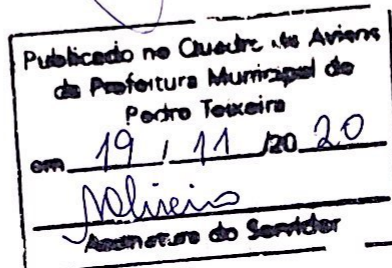 Publicado no Quadro de Avisos
da Prefeitura Municipal de
Pedro Teixeira
em 19 / 11 /20 20
Assinatura do Servidor